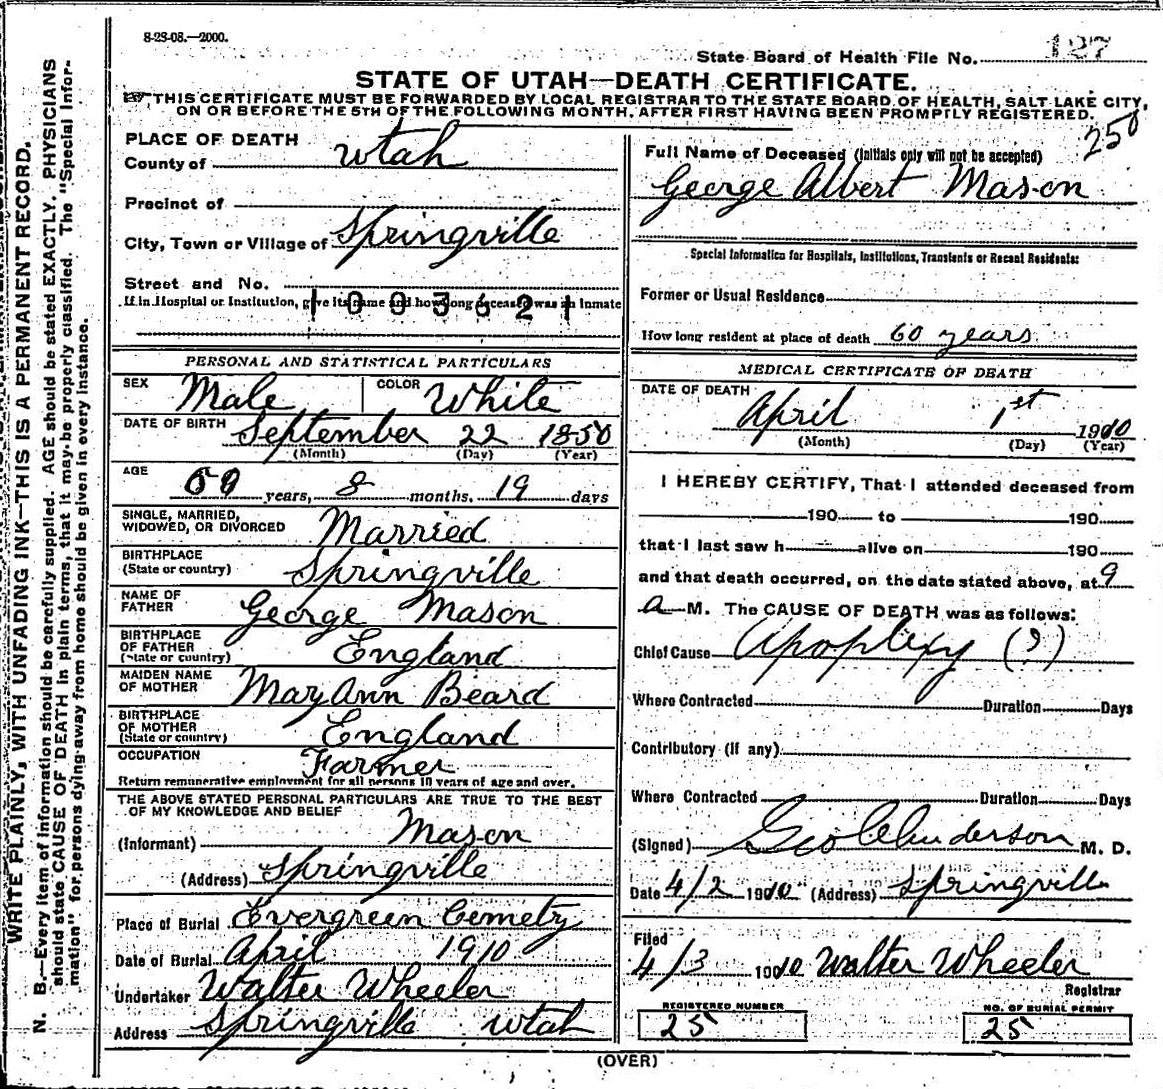 8-28-08.—2000.
State Board of Health File No. 127
STATE OF UTAH—DEATH CERTIFICATE.
THIS CERTIFICATE MUST BE FORWARDED BY LOCAL REGISTRAR TO THE STATE BOARD OF HEALTH, SALT LAKE CITY,
ON OR BEFORE THE 5TH OF THE FOLLOWING MONTH, AFTER FIRST HAVING BEEN PROMPTLY REGISTERED.
WRITE PLAINLY, WITH UNFADING INK—THIS IS A PERMANENT RECORD.
N. B.—Every item of information should be carefully supplied. AGE should be stated EXACTLY. PHYSICIANS
should state CAUSE OF DEATH in plain terms, that it may be properly classified. The "Special Infor-
mation" for persons dying away from home should be given in every instance.
PLACE OF DEATH
County of Utah
Precinct of
City, Town or Village of Springville
Street and No.
If in Hospital or Institution, give its name and how long deceased was an inmate
1003621
PERSONAL AND STATISTICAL PARTICULARS
SEX Male COLOR White
DATE OF BIRTH September 22 1850
(Month) (Day) (Year)
AGE 59 years, 8 months, 19 days
SINGLE, MARRIED,
WIDOWED, OR DIVORCED Married
BIRTHPLACE
(State or country) Springville
NAME OF
FATHER George Mason
BIRTHPLACE
OF FATHER
(State or country) England
MAIDEN NAME
OF MOTHER Mary Ann Beard
BIRTHPLACE
OF MOTHER
(State or country) England
OCCUPATION Farmer
Return remunerative employment for all persons 10 years of age and over.
THE ABOVE STATED PERSONAL PARTICULARS ARE TRUE TO THE BEST
OF MY KNOWLEDGE AND BELIEF
(Informant) Mason
(Address) Springville
Place of Burial Evergreen Cemetry
Date of Burial April 1910
Undertaker Walter Wheeler
Address Springville Utah
250
Full Name of Deceased (Initials only will not be accepted)
George Albert Mason
Special Information for Hospitals, Institutions, Transients or Recent Residents:
Former or Usual Residence
How long resident at place of death 60 years
MEDICAL CERTIFICATE OF DEATH
DATE OF DEATH
April 1st 1910
(Month) (Day) (Year)
I HEREBY CERTIFY, That I attended deceased from
190 to 190
that I last saw h alive on 190
and that death occurred, on the date stated above, at 9
a M. The CAUSE OF DEATH was as follows:
Chief Cause Apoplexy (?)
Where Contracted Duration Days
Contributory (if any)
Where Contracted Duration Days
(Signed) Geo Anderson M. D.
Date 4/2 1910 (Address) Springville
Filed
4/3 1910 Walter Wheeler
Registrar
REGISTERED NUMBER
25
NO. OF BURIAL PERMIT
25
(OVER)